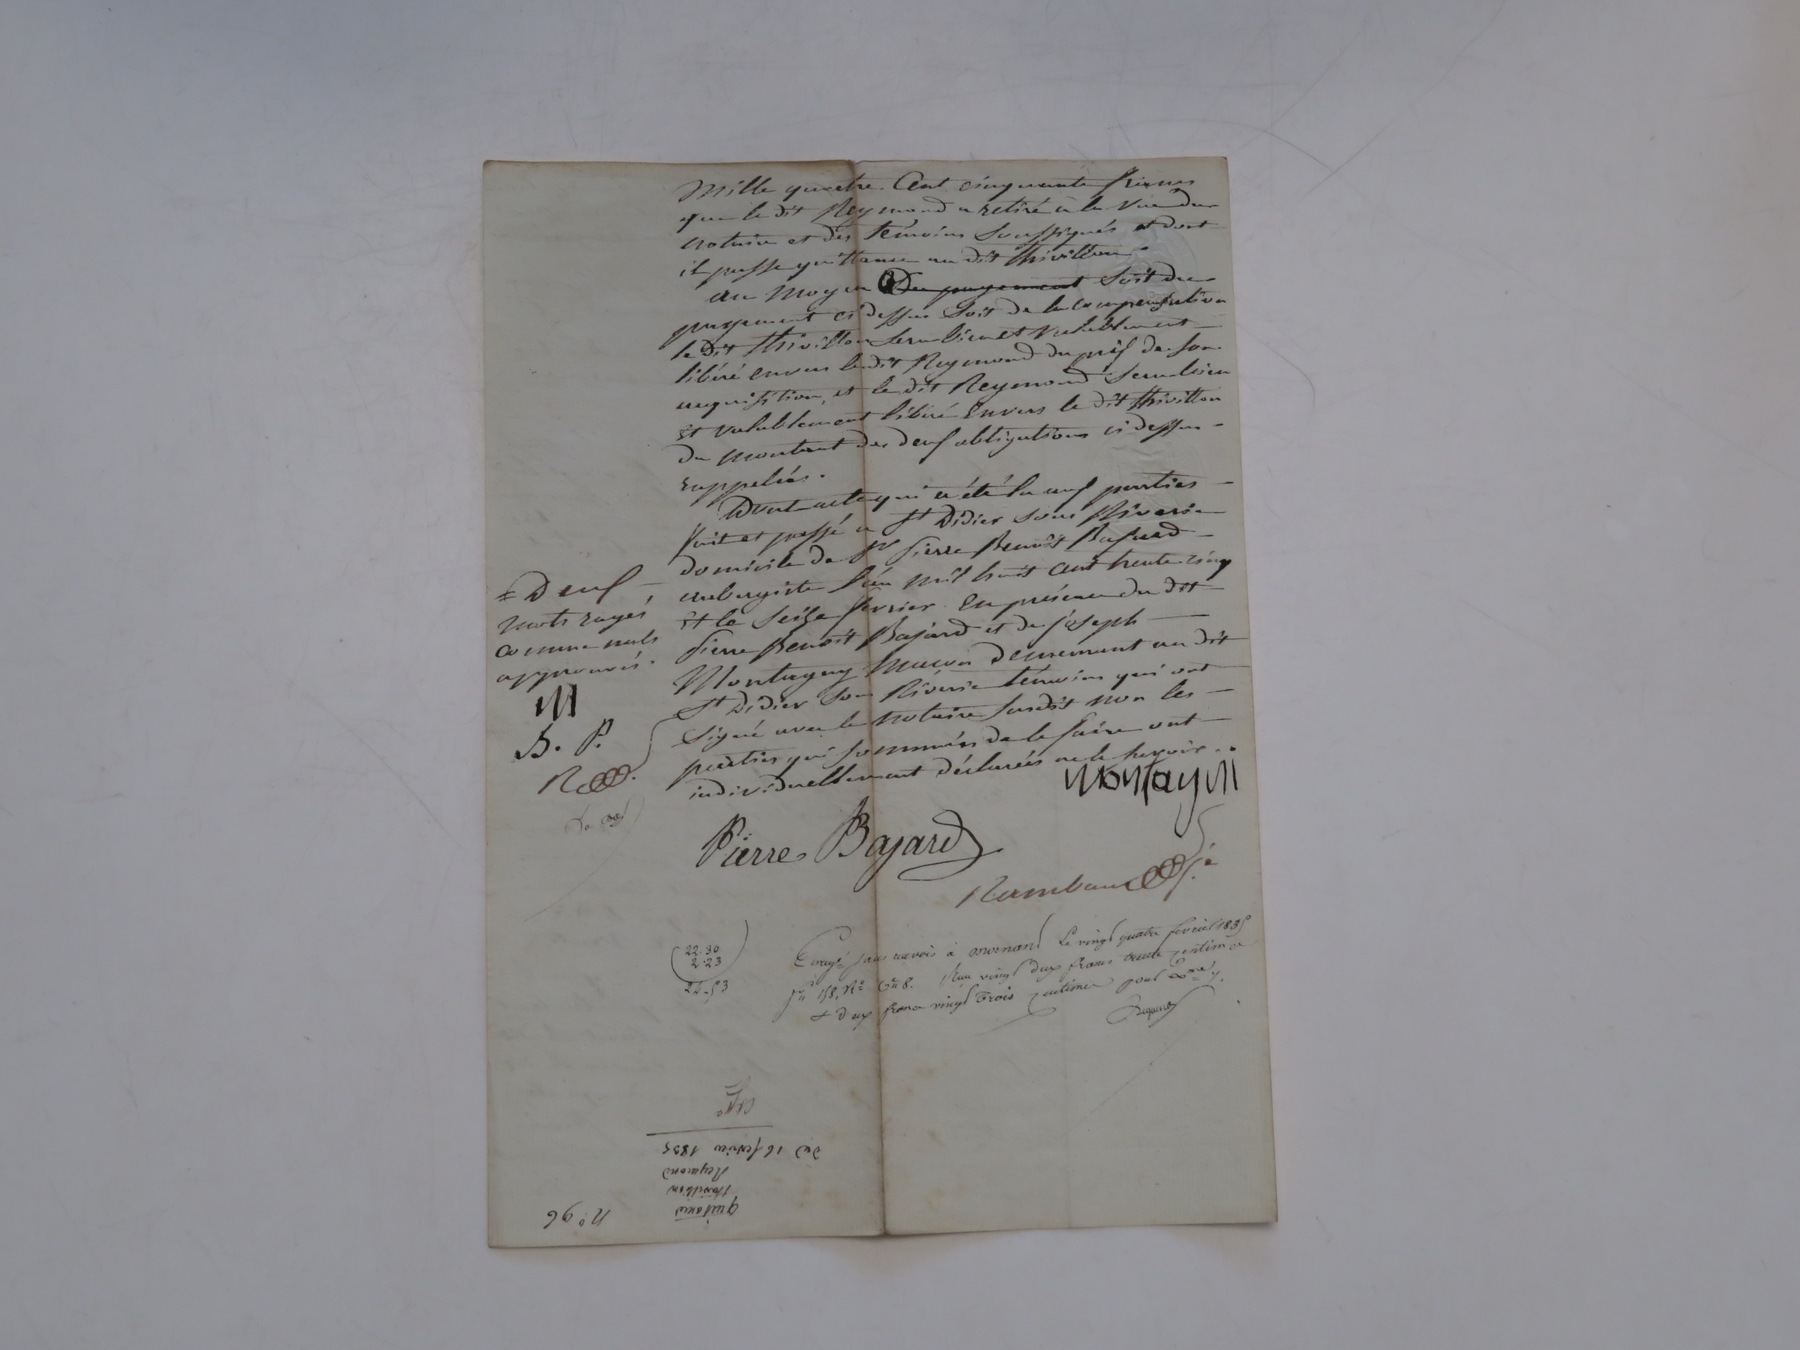 Mille quatre Cent cinquante francs
que le dit Reymond a retiré à la Vue du
notaire et des témoins Soussignés et dont
il passe quittance au dit Thivillon
au moyen Du payement Soit du
payement ci dessus Soit de la compensation
le Dit Thivillon Sera bien et Valablement
libéré envers le dit Reymond du prix de Son
acquisition, et le dit Reymond Sera bien
et Valablement libéré Envers le dit Thivillon
du montant des deux obligations ci dessus
rappelées.
Dont acte qui a été lu aux parties
fait et passé à St Didier Sous Riverie
domicile de Sr Pierre Benoît Bajard
aubergiste l'an mil huit cent trente cinq
et le Seize février En présence du dit
Pierre Benoît Bajard et de Joseph
Montagny Maçon demeurant au dit
St Didier Sous Riverie témoins qui ont
Signé avec le notaire Susdit non les
parties qui Sommées de le faire ont
individuellement déclarées ne le Savoir.
= Deux
mots rayés
comme nuls
approuvés.
M
B. P.
R
montagni
Pierre Bajard
Rambaud
22.30
2.23
24.53
Enregé sans renvois à mornant Le vingt quatre fevrier 1835
fo 158, Ro Reçu vingt deux francs trente centimes
& deux francs vingt Trois centimes pour
No 96
quitance
thivillon
Reymond
du 16 fevrier 1835